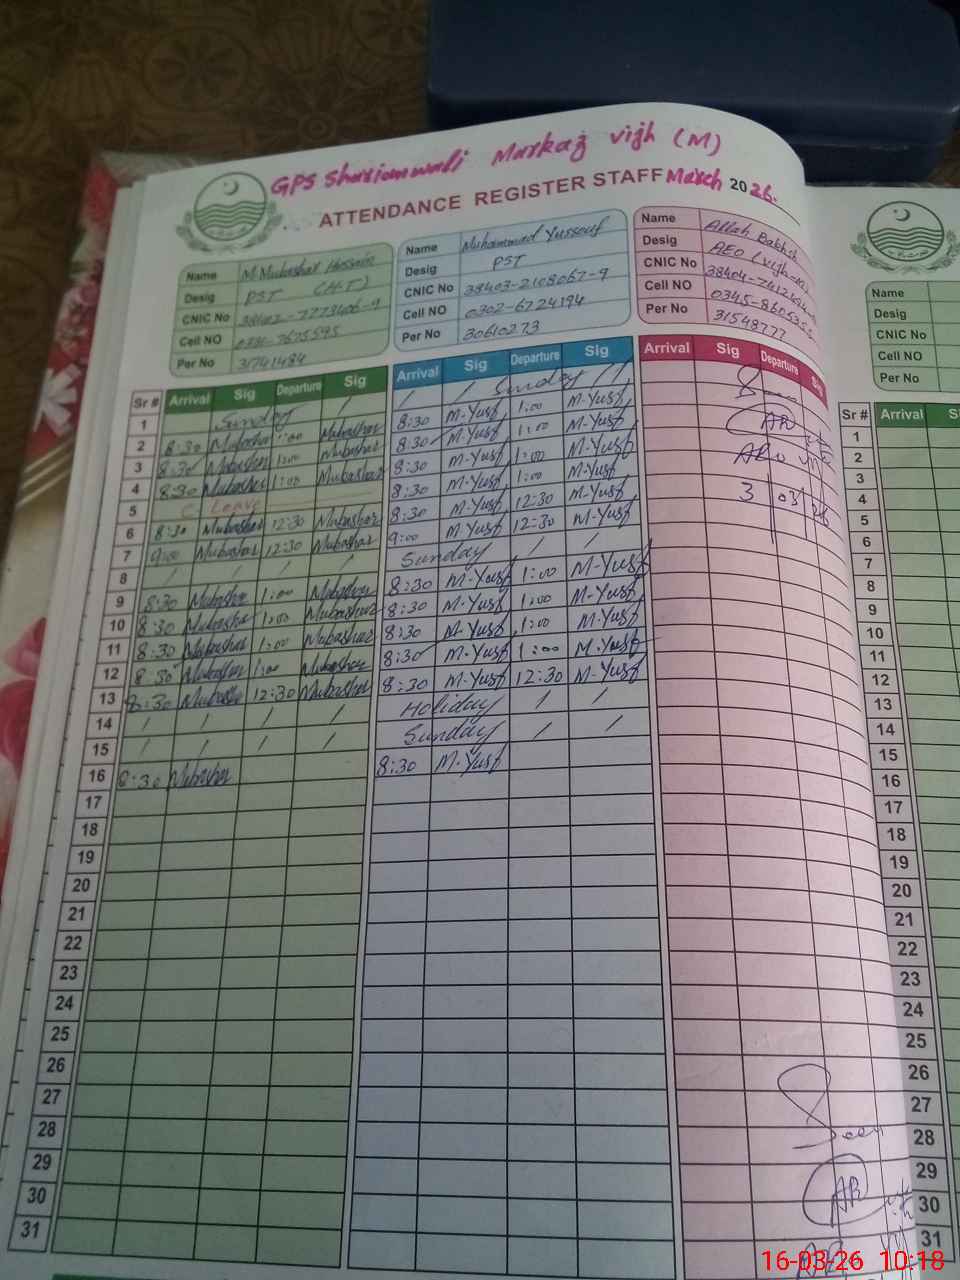 GPS Sharionwali Markaz vijh (M)
ATTENDANCE REGISTER STAFF March 2026.
Name M. Mubashar Hussain
Desig PST (H.T)
CNIC No
Cell NO 7675595
Per No 31741484
Name Muhammad Yussouf
Desig PST
CNIC No 38403-2108067-9
Cell NO 0302-6724194
Per No 30610273
Name Allah Bakhsh
Desig AEO
CNIC No
Cell NO
Per No 31548777
Name
Desig
CNIC No
Cell NO
Per No
Sr # Arrival Sig Departure Sig Arrival Sig Departure Sig Arrival Sig Departure Sig
Sr # Arrival
1 Sunday / / / Sunday / /
2 8:30 Mubashar 1:00 Mubashar 8:30 M-Yusf 1:00 M-Yusf
3 8:30 Mubashar 1:00 Mubashar 8:30 M-Yusf 1:00 M-Yusf
4 8:30 Mubashar 1:00 Mubashar 8:30 M-Yusf 1:00 M-Yusf
5 C-Leave 8:30 M-Yusf 1:00 M-Yusf
6 8:30 Mubashar 12:30 Mubashar 8:30 M-Yusf 12:30 M-Yusf
7 9:00 Mubashar 12:30 Mubashar 9:00 M-Yusf 12:30 M-Yusf
8 / / / / Sunday / /
9 8:30 Mubashar 1:00 Mubashar 8:30 M-Yusf 1:00 M-Yusf
10 8:30 Mubashar 1:00 Mubashar 8:30 M-Yusf 1:00 M-Yusf
11 8:30 Mubashar 1:00 Mubashar 8:30 M-Yusf 1:00 M-Yusf
12 8:30 Mubashar 1:00 Mubashar 8:30 M-Yusf 1:00 M-Yusf
13 8:30 Mubashar 12:30 Mubashar 8:30 M-Yusf 12:30 M-Yusf
14 / / / / Holiday / /
15 / / / / Sunday / /
16 8:30 Mubashar 8:30 M-Yusf
17
18
19
20
21
22
23
24
25
26
27
28
29
30
31
AB
AEO
3 03 26
Seen
AB
AEO
1
2
3
4
5
6
7
8
9
10
11
12
13
14
15
16
17
18
19
20
21
22
23
24
25
26
27
28
29
30
31
16-03-26 10:18